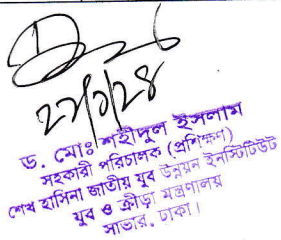 ড. মোঃ শহীদুল ইসলাম
সহকারী পরিচালক (প্রশিক্ষণ)
শেখ হাসিনা জাতীয় যুব উন্নয়ন ইনস্টিটিউট
যুব ও ক্রীড়া মন্ত্রণালয়
সাভার, ঢাকা।